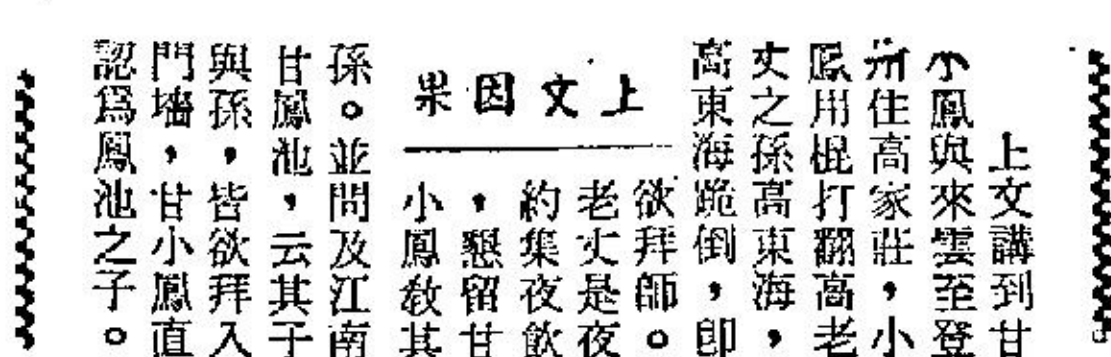 上文因果
上文講到甘
小鳳與來雲至登
州住高家莊，小
鳳用棍打翻高老
丈之孫高東海，
高東海跪倒，卽
欲拜師。
老丈是夜
約集夜飲
，懇留甘
小鳳敎其
孫。並問及江南
甘鳳池，云其子
與孫，皆欲拜入
門墻，甘小鳳直
認爲鳳池之子。